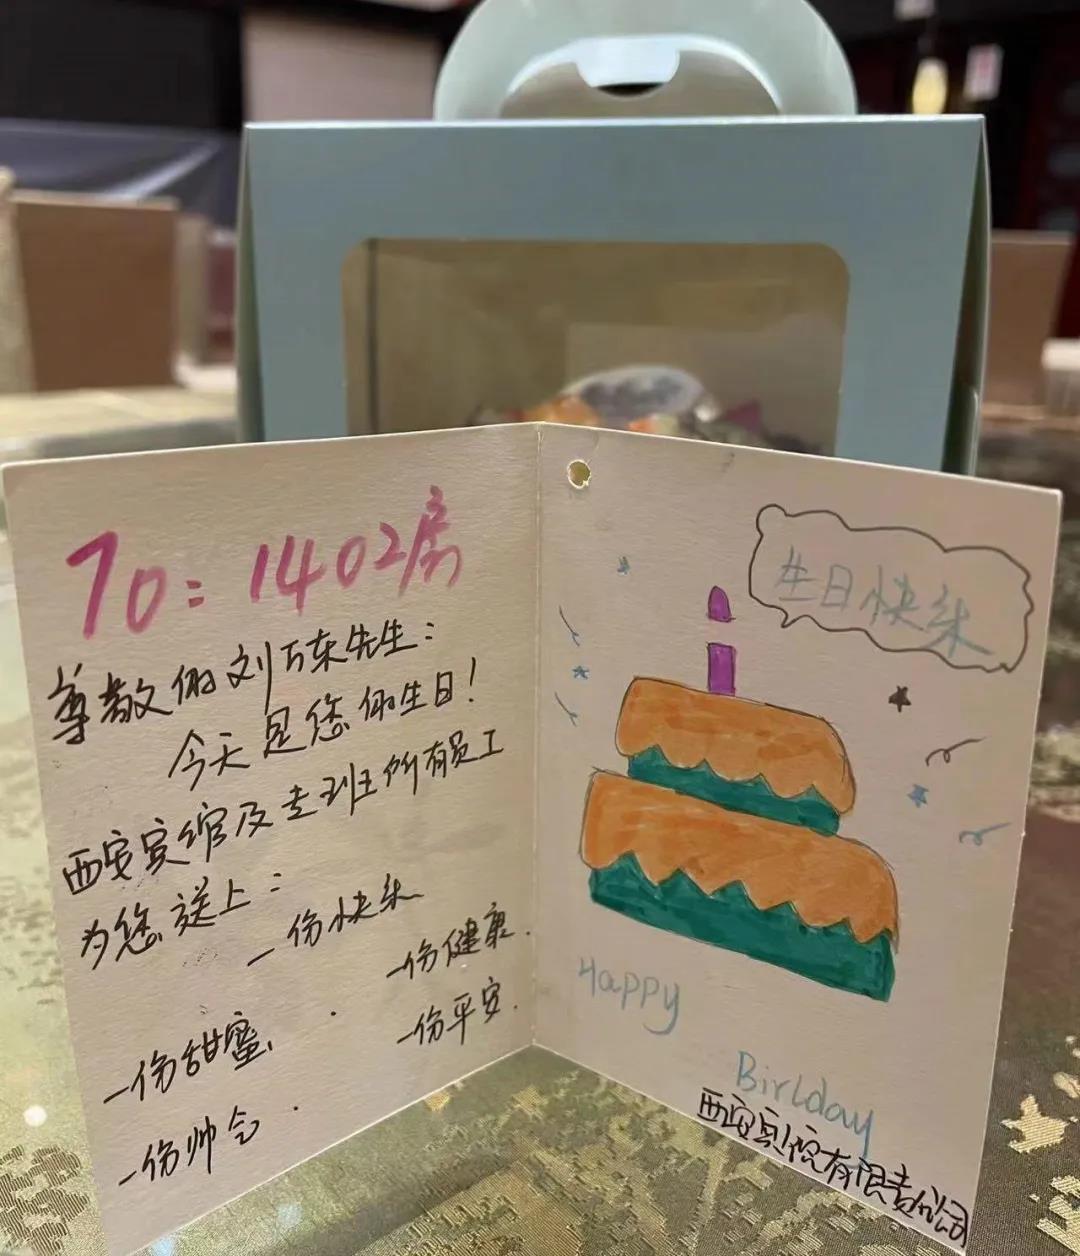 TO：1402房
尊敬的刘万东先生：
今天是您的生日！
西安宾馆及 所有员工
为您送上：
一份快乐
一份健康.
一份甜蜜,
一份平安.
一份帅气.
生日快乐
Happy
Birlday
西安宾馆有限责任公司